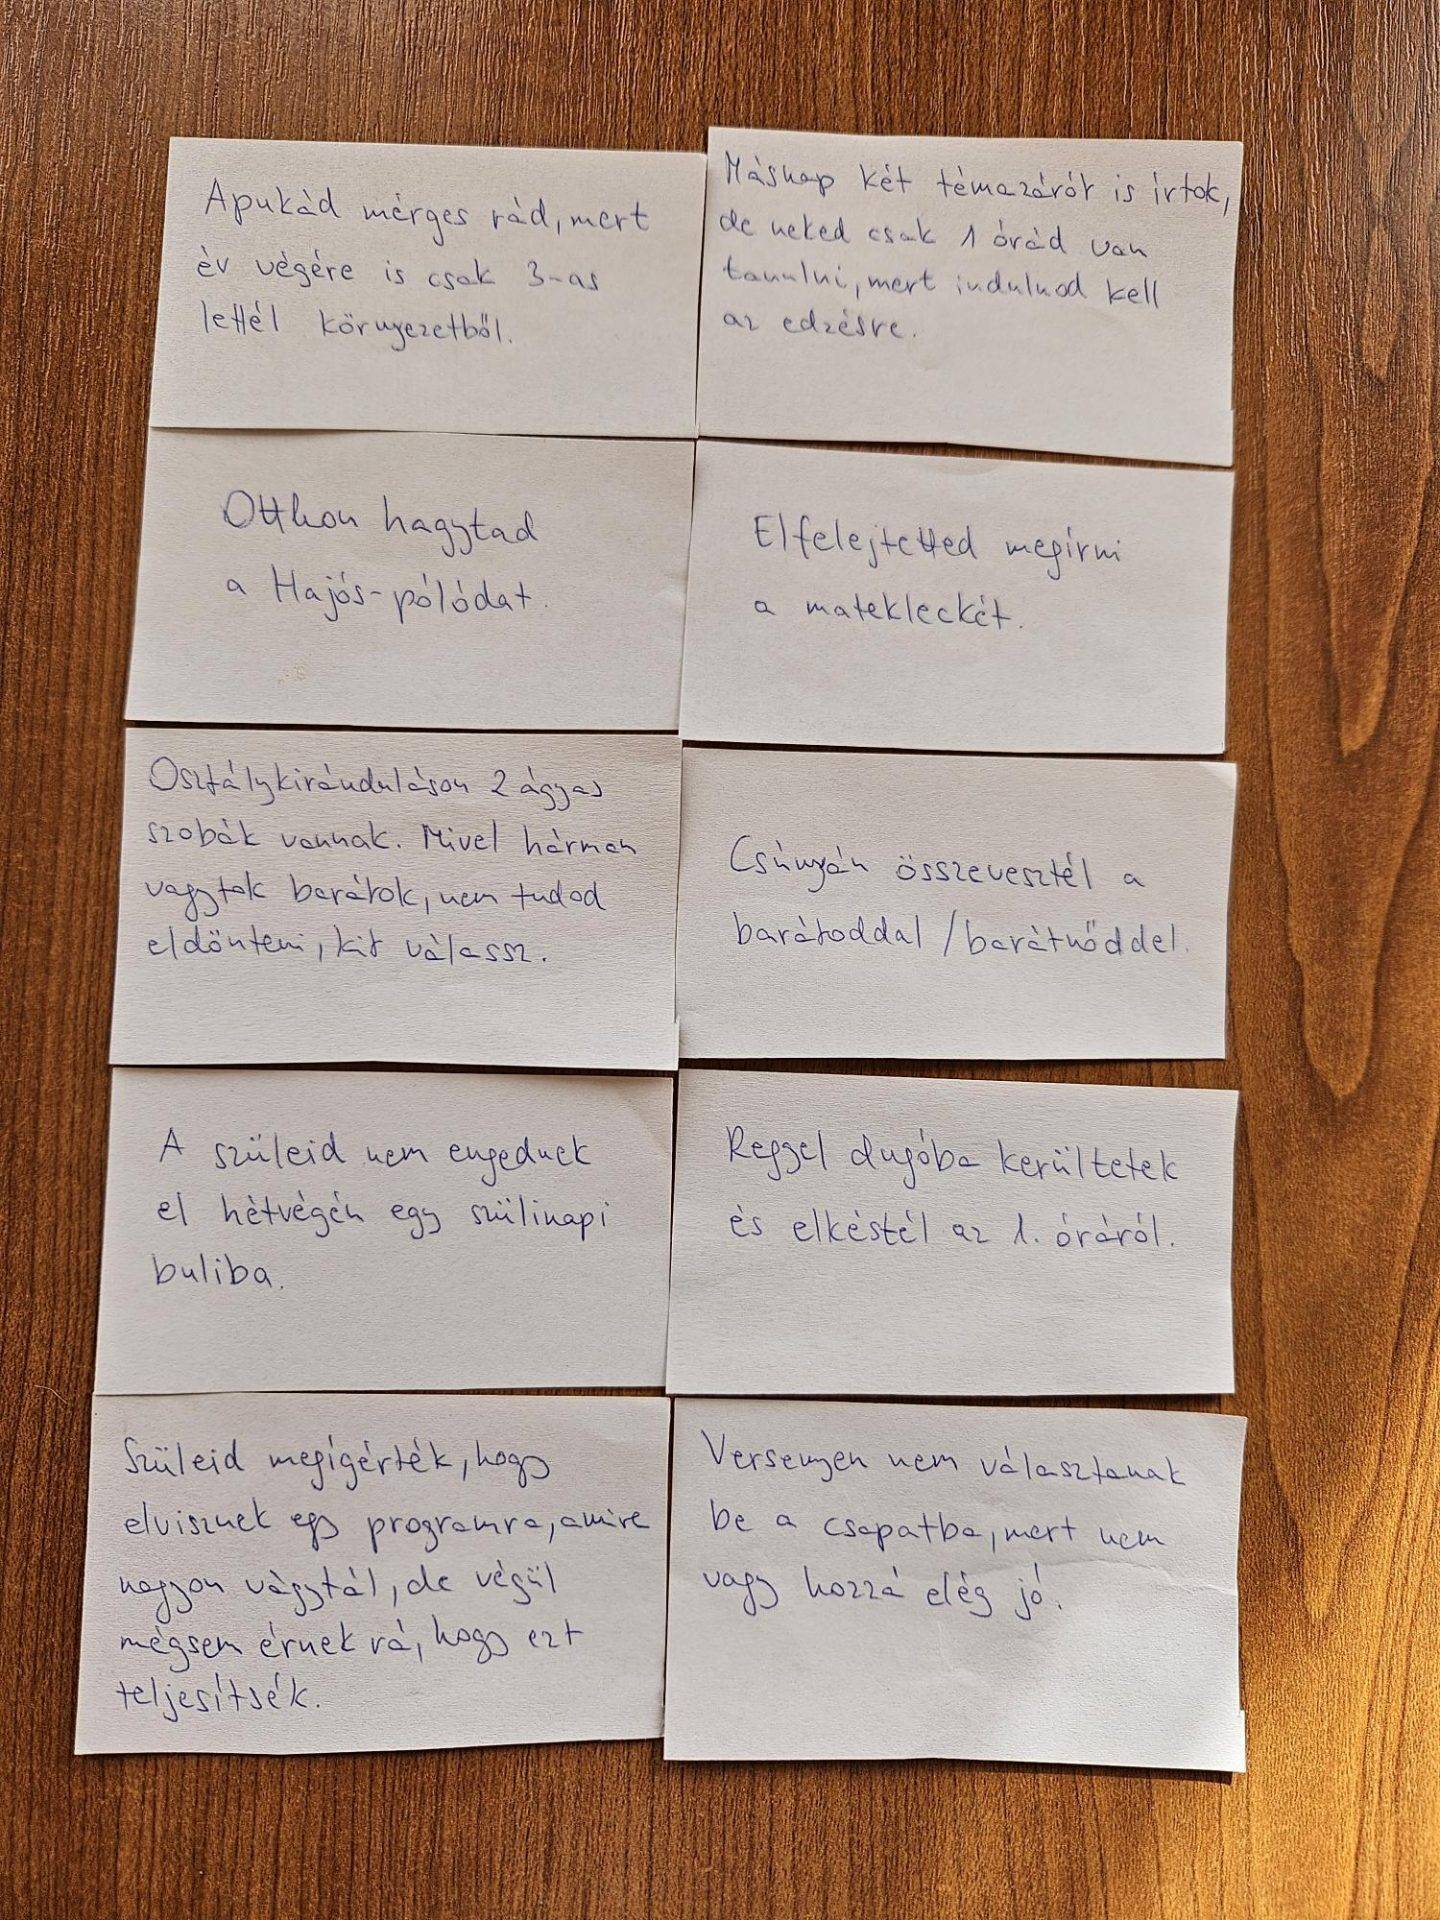 Apukád mérges rád, mert
év végére is csak 3-as
lettél környezetből.
Másnap két témazárót is írtok,
de neked csak 1 órád van
tanulni, mert indulnod kell
az edzésre.
Otthon hagytad
a Hajós-pólódat.
Elfelejtetted megírni
a matekleckét.
Osztálykiránduláson 2 ágyas
szobák vannak. Mivel hárman
vagytok barátok, nem tudod
eldönteni, kit válassz.
Csúnyán összevesztél a
barátoddal / barátnőddel.
A szüleid nem engednek
el hétvégén egy szülinapi
buliba.
Reggel dugóba kerültetek
és elkéstél az 1. óráról.
Szüleid megígérték, hogy
elvisznek egy programra, amire
nagyon vágytál, de végül
mégsem érnek rá, hogy ezt
teljesítsék.
Versenyen nem választanak
be a csapatba, mert nem
vagy hozzá elég jó.